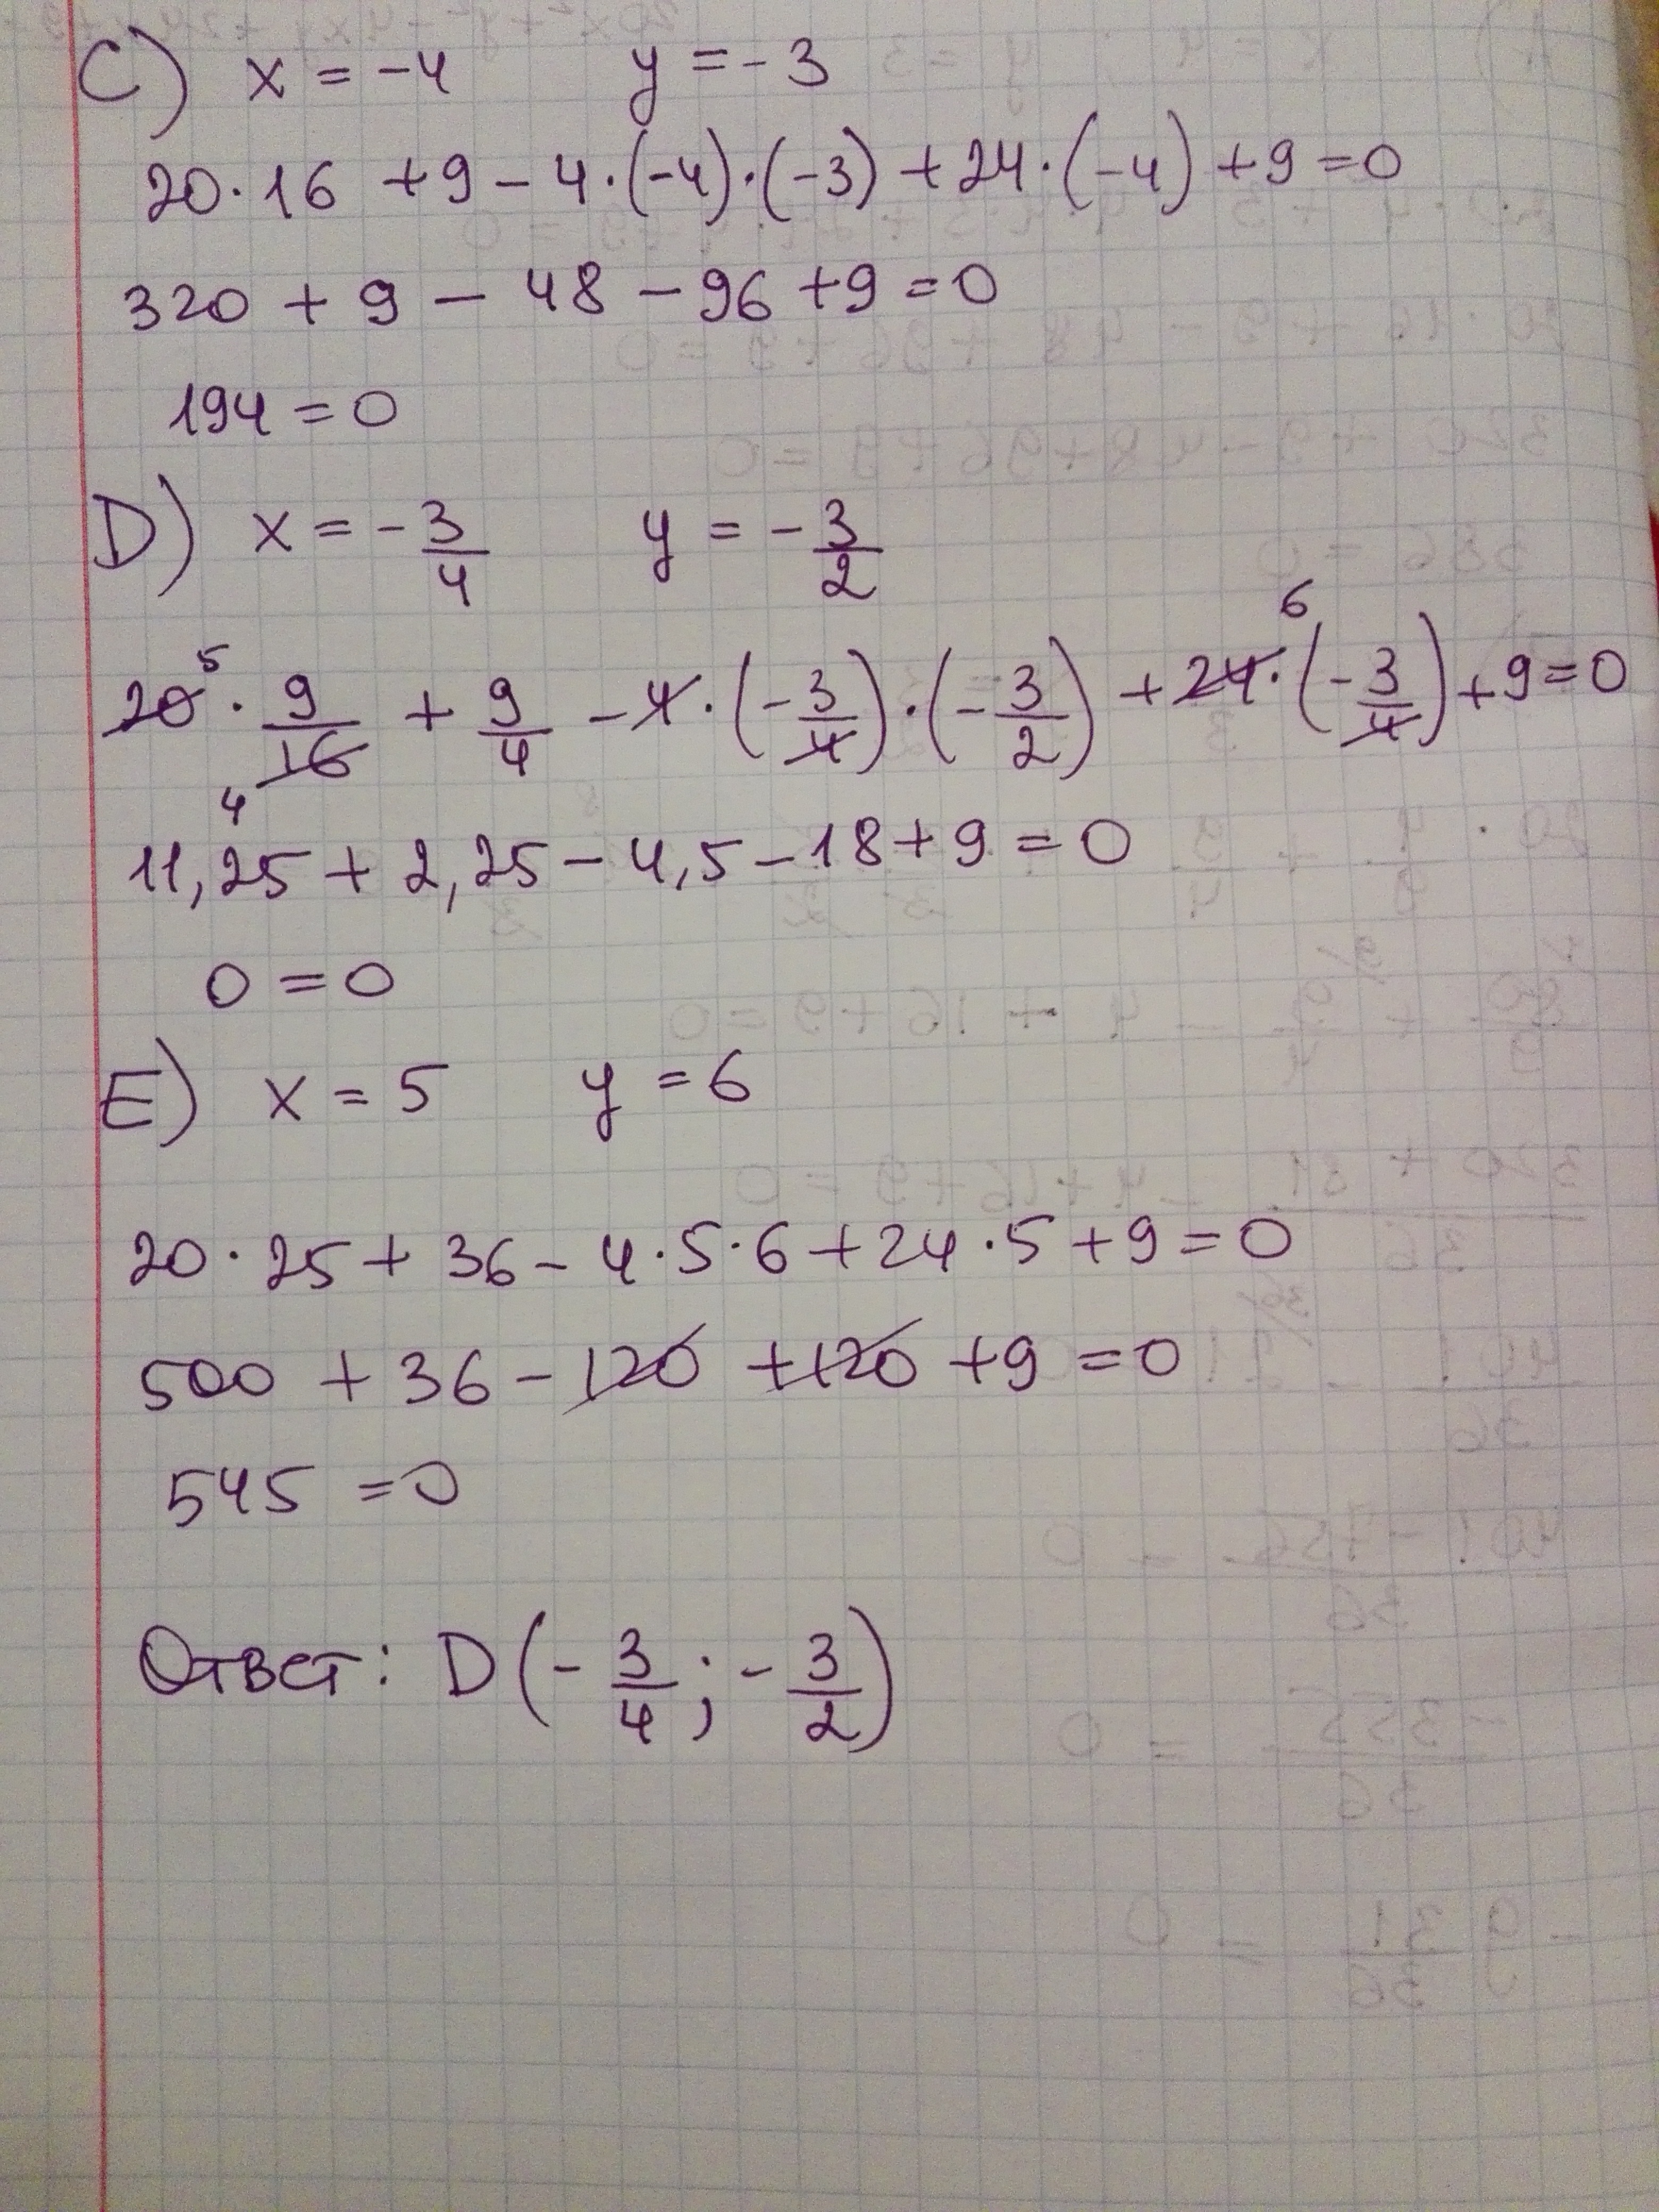 C) x = -4 y = -3
20·16 + 9 - 4·(-4)·(-3) + 24·(-4) + 9 = 0
320 + 9 - 48 - 96 + 9 = 0
194 = 0
D) x = -3/4 y = -3/2
20⁵ · 9/16₄ + 9/4 - 4·(-3/4)·(-3/2) + 24⁶·(-3/4) + 9 = 0
11,25 + 2,25 - 4,5 - 18 + 9 = 0
0 = 0
E) x = 5 y = 6
20·25 + 36 - 4·5·6 + 24·5 + 9 = 0
500 + 36 - 120 + 120 + 9 = 0
545 = 0
Ответ: D(-3/4; -3/2)